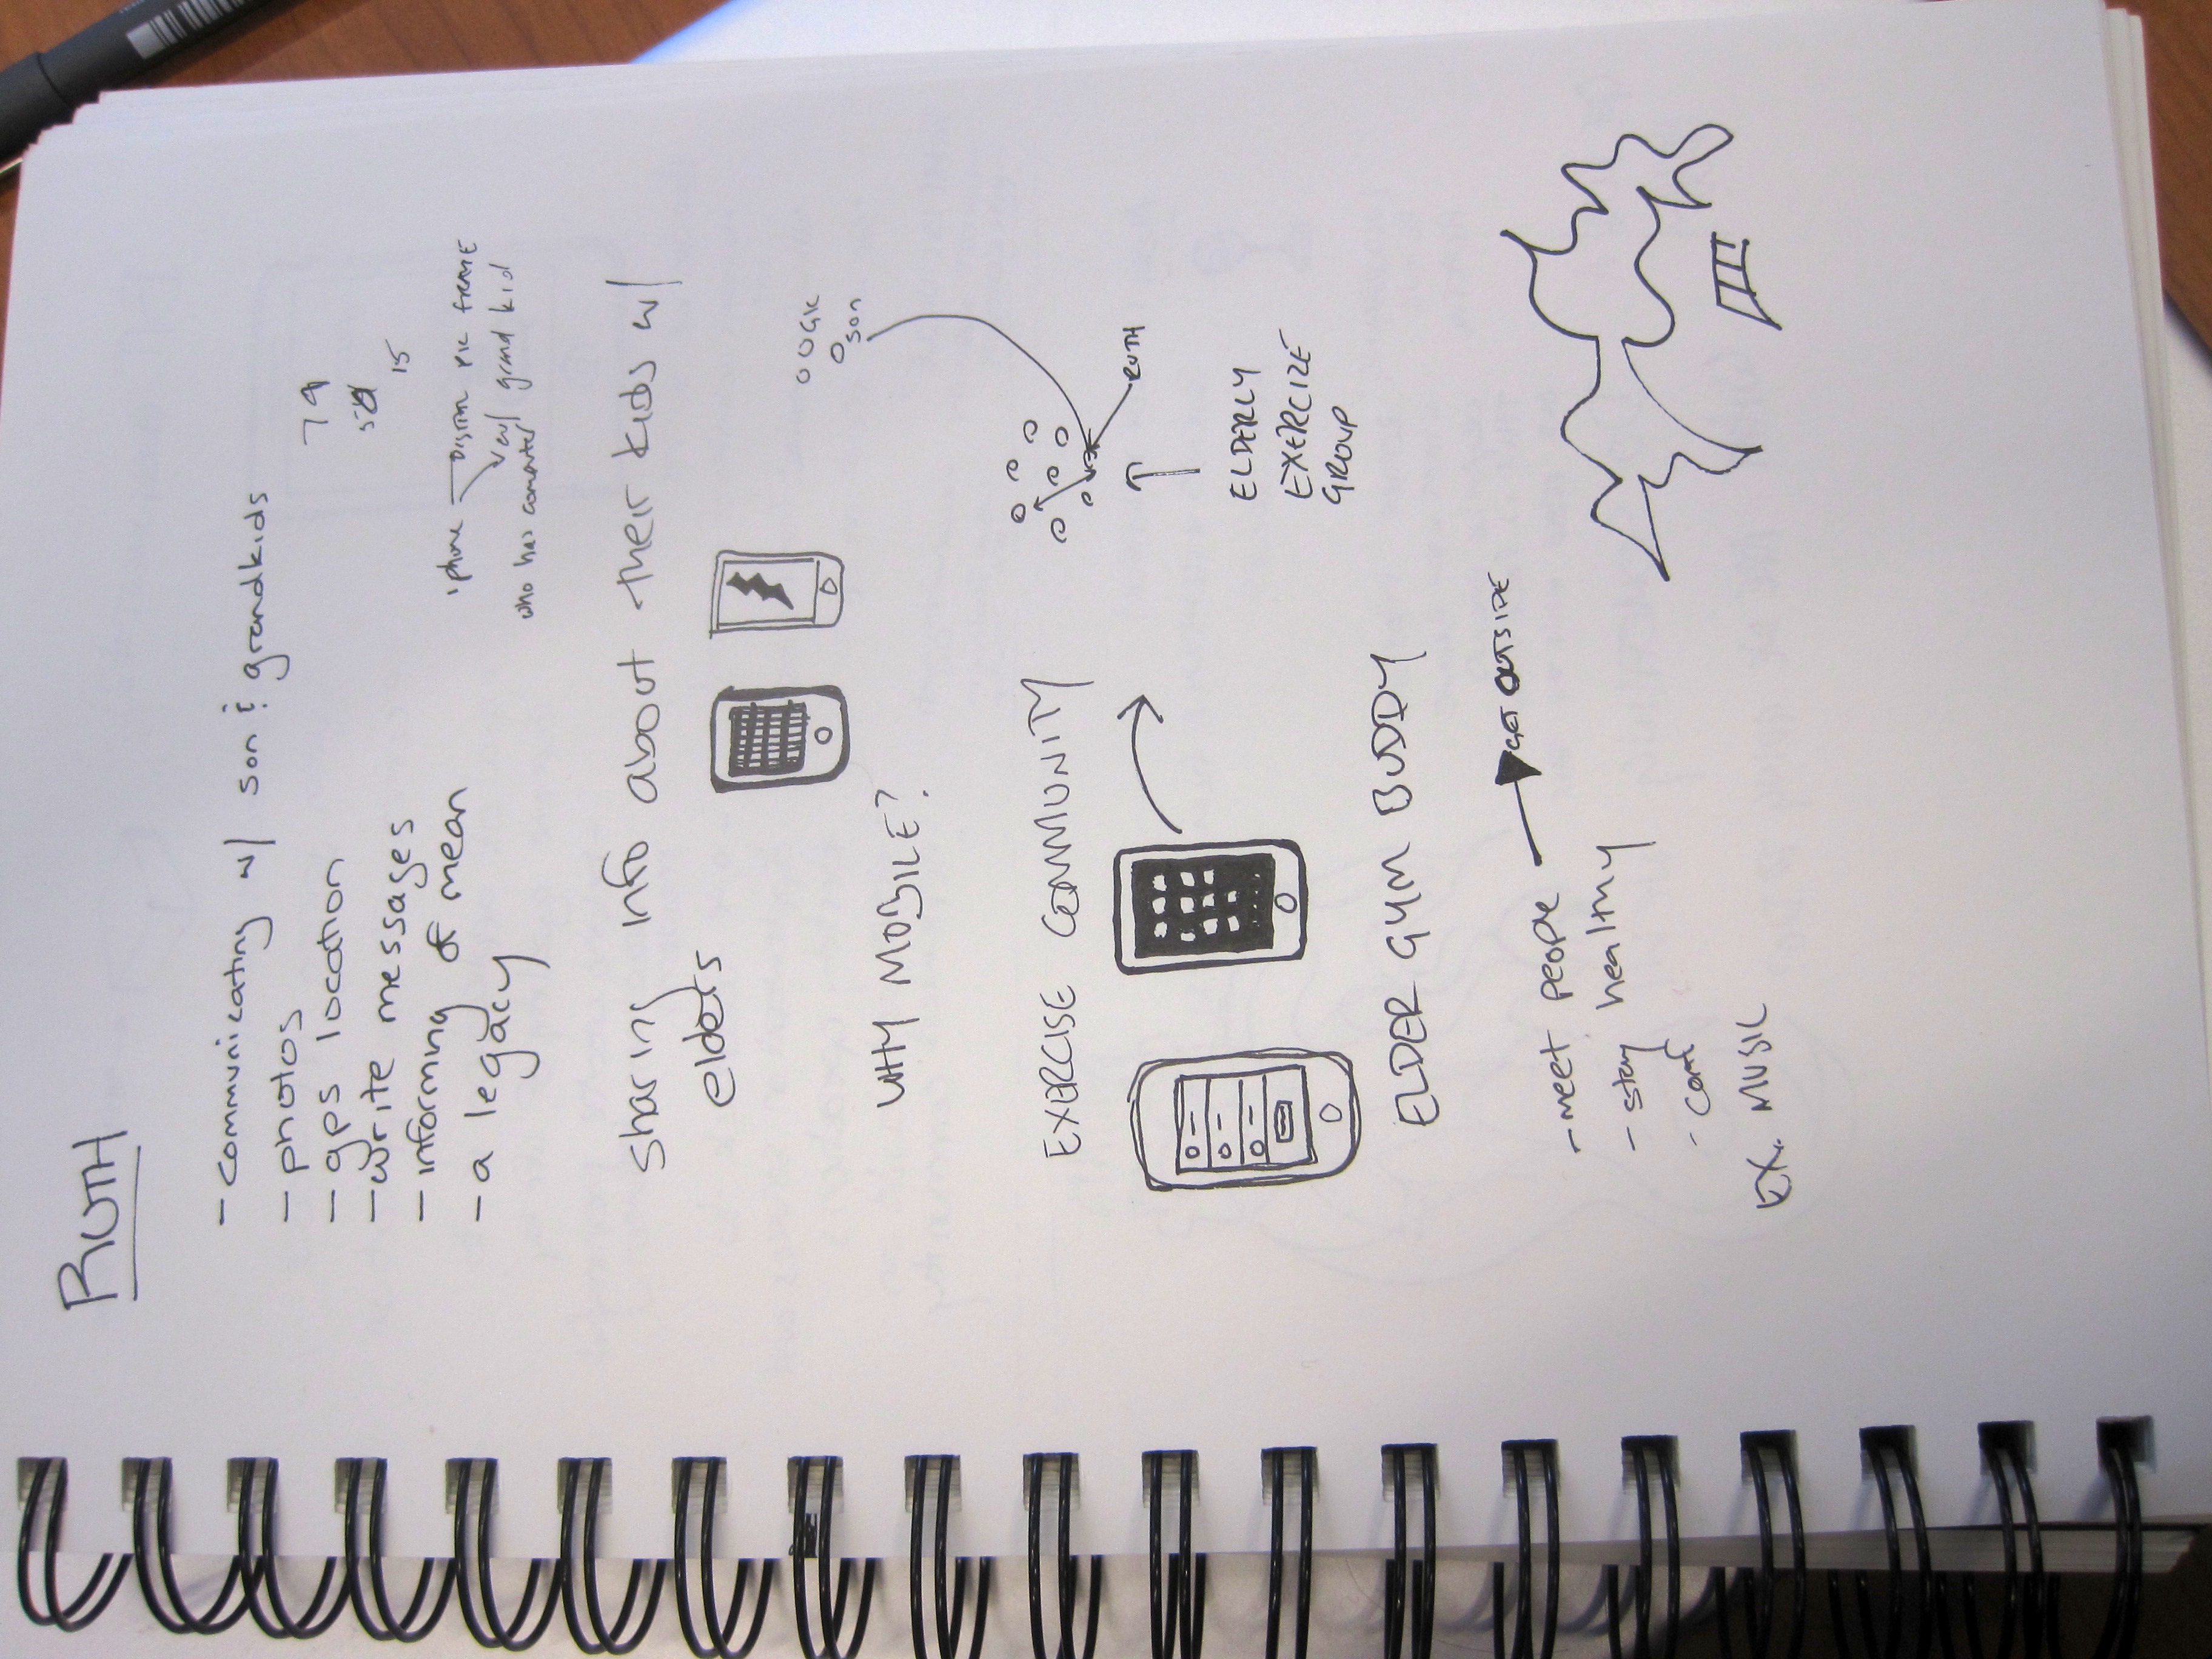 RUTH
- communicating w/ son & grandkids
- photos
- gps location
- write messages
- informing of mean
- a legacy
79
15
iphone
pic frame
w/ grand kid
who has computer
sharing info about their kids w/
elders
GK
son
WHY MOBILE?
EXERCISE COMMUNITY
RUTH
ELDERLY
EXERCIZE
GROUP
ELDER GYM BUDDY
- meet people
GET OUTSIDE
- stay healthy
-
EX. MUSIC